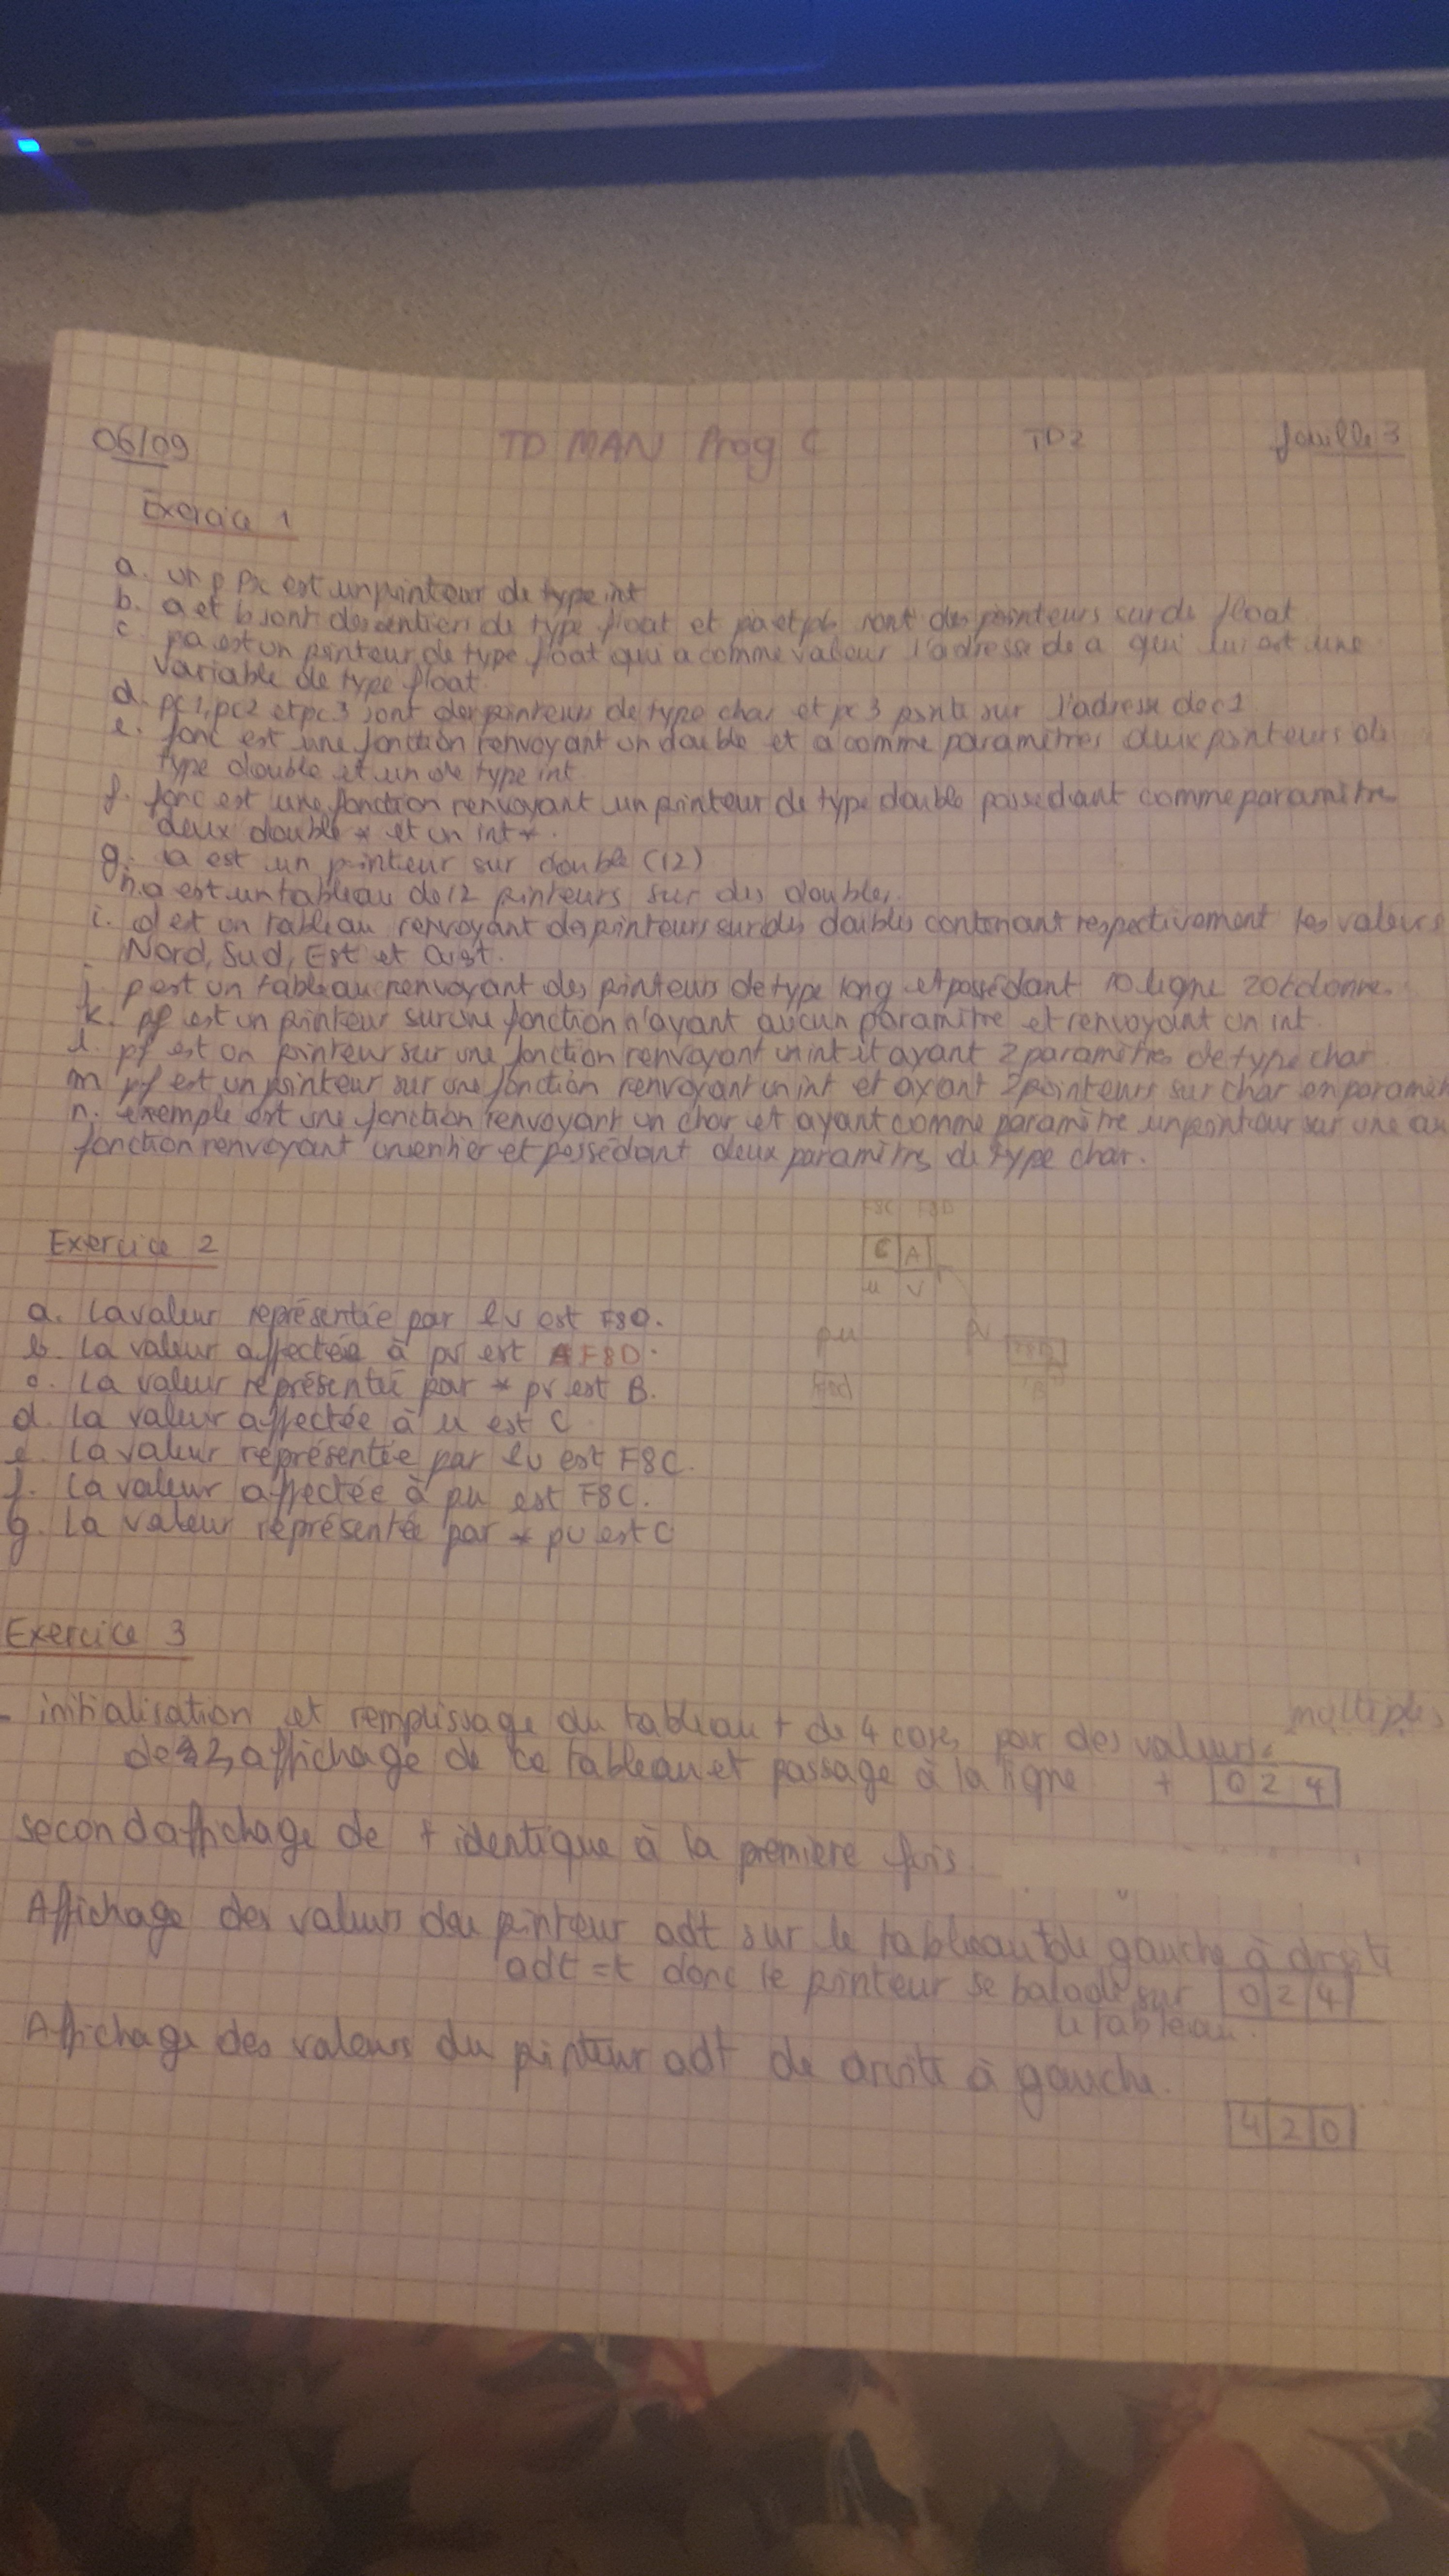 06/09 TD MAN Prog C TD2 feuille 3
Exercice 1
a. Px est un pointeur de type int
b. a et b sont des entiers de type float et pa et pb sont des pointeurs sur de float
c. pa est un pointeur de type float qui a comme valeur l'adresse de a qui lui est une
variable de type float.
d. pc1, pc2 et pc3 sont des pointeurs de type char et pc3 pointe sur l'adresse de c1
e. fonc est une fonction renvoyant un double et a comme paramètres deux pointeurs de
type double et un de type int
f. fonc est une fonction renvoyant un pointeur de type double possédant comme paramètre
deux double * et un int *.
g. a est un pointeur sur double (12)
h. a est un tableau de 12 pointeurs sur des doubles.
i. d est un tableau renvoyant des pointeurs sur des doubles contenant respectivement les valeurs
Nord, Sud, Est et Ouest.
j. p est un tableau renvoyant des pointeurs de type long et possédant 10 ligne 20 colonnes.
k. pf est un pointeur sur une fonction n'ayant aucun paramètre et renvoyant un int.
l. pf est un pointeur sur une fonction renvoyant un int et ayant 2 paramètres de type char
m pf est un pointeur sur une fonction renvoyant un int et ayant 2 pointeurs sur char en paramèt
n. exemple est une fonction renvoyant un char et ayant comme paramètre un pointeur sur une au
fonction renvoyant un entier et possédant deux paramètres de type char.
F8C F8D
Exercice 2
C A
u v
a. La valeur représentée par &v est F8D.
pu pv
b. La valeur affectée à pv est F8D.
c. La valeur représentée par * pv est B.
d. La valeur affectée à u est C
e. La valeur représentée par &u est F8C.
f. La valeur affectée à pu est F8C.
g. La valeur représentée par * pu est C
Exercice 3
- initialisation et remplissage du tableau t de 4 cases par des valeurs multiples
de 2, affichage de ce tableau et passage à la ligne t 0 2 4
second affichage de t identique à la première fois.
Affichage des valeurs du pointeur adt sur le tableau de gauche à droite
adt = t donc le pointeur se balade sur 0 2 4
le tableau.
Affichage des valeurs du pointeur adt de droite à gauche.
4 2 0